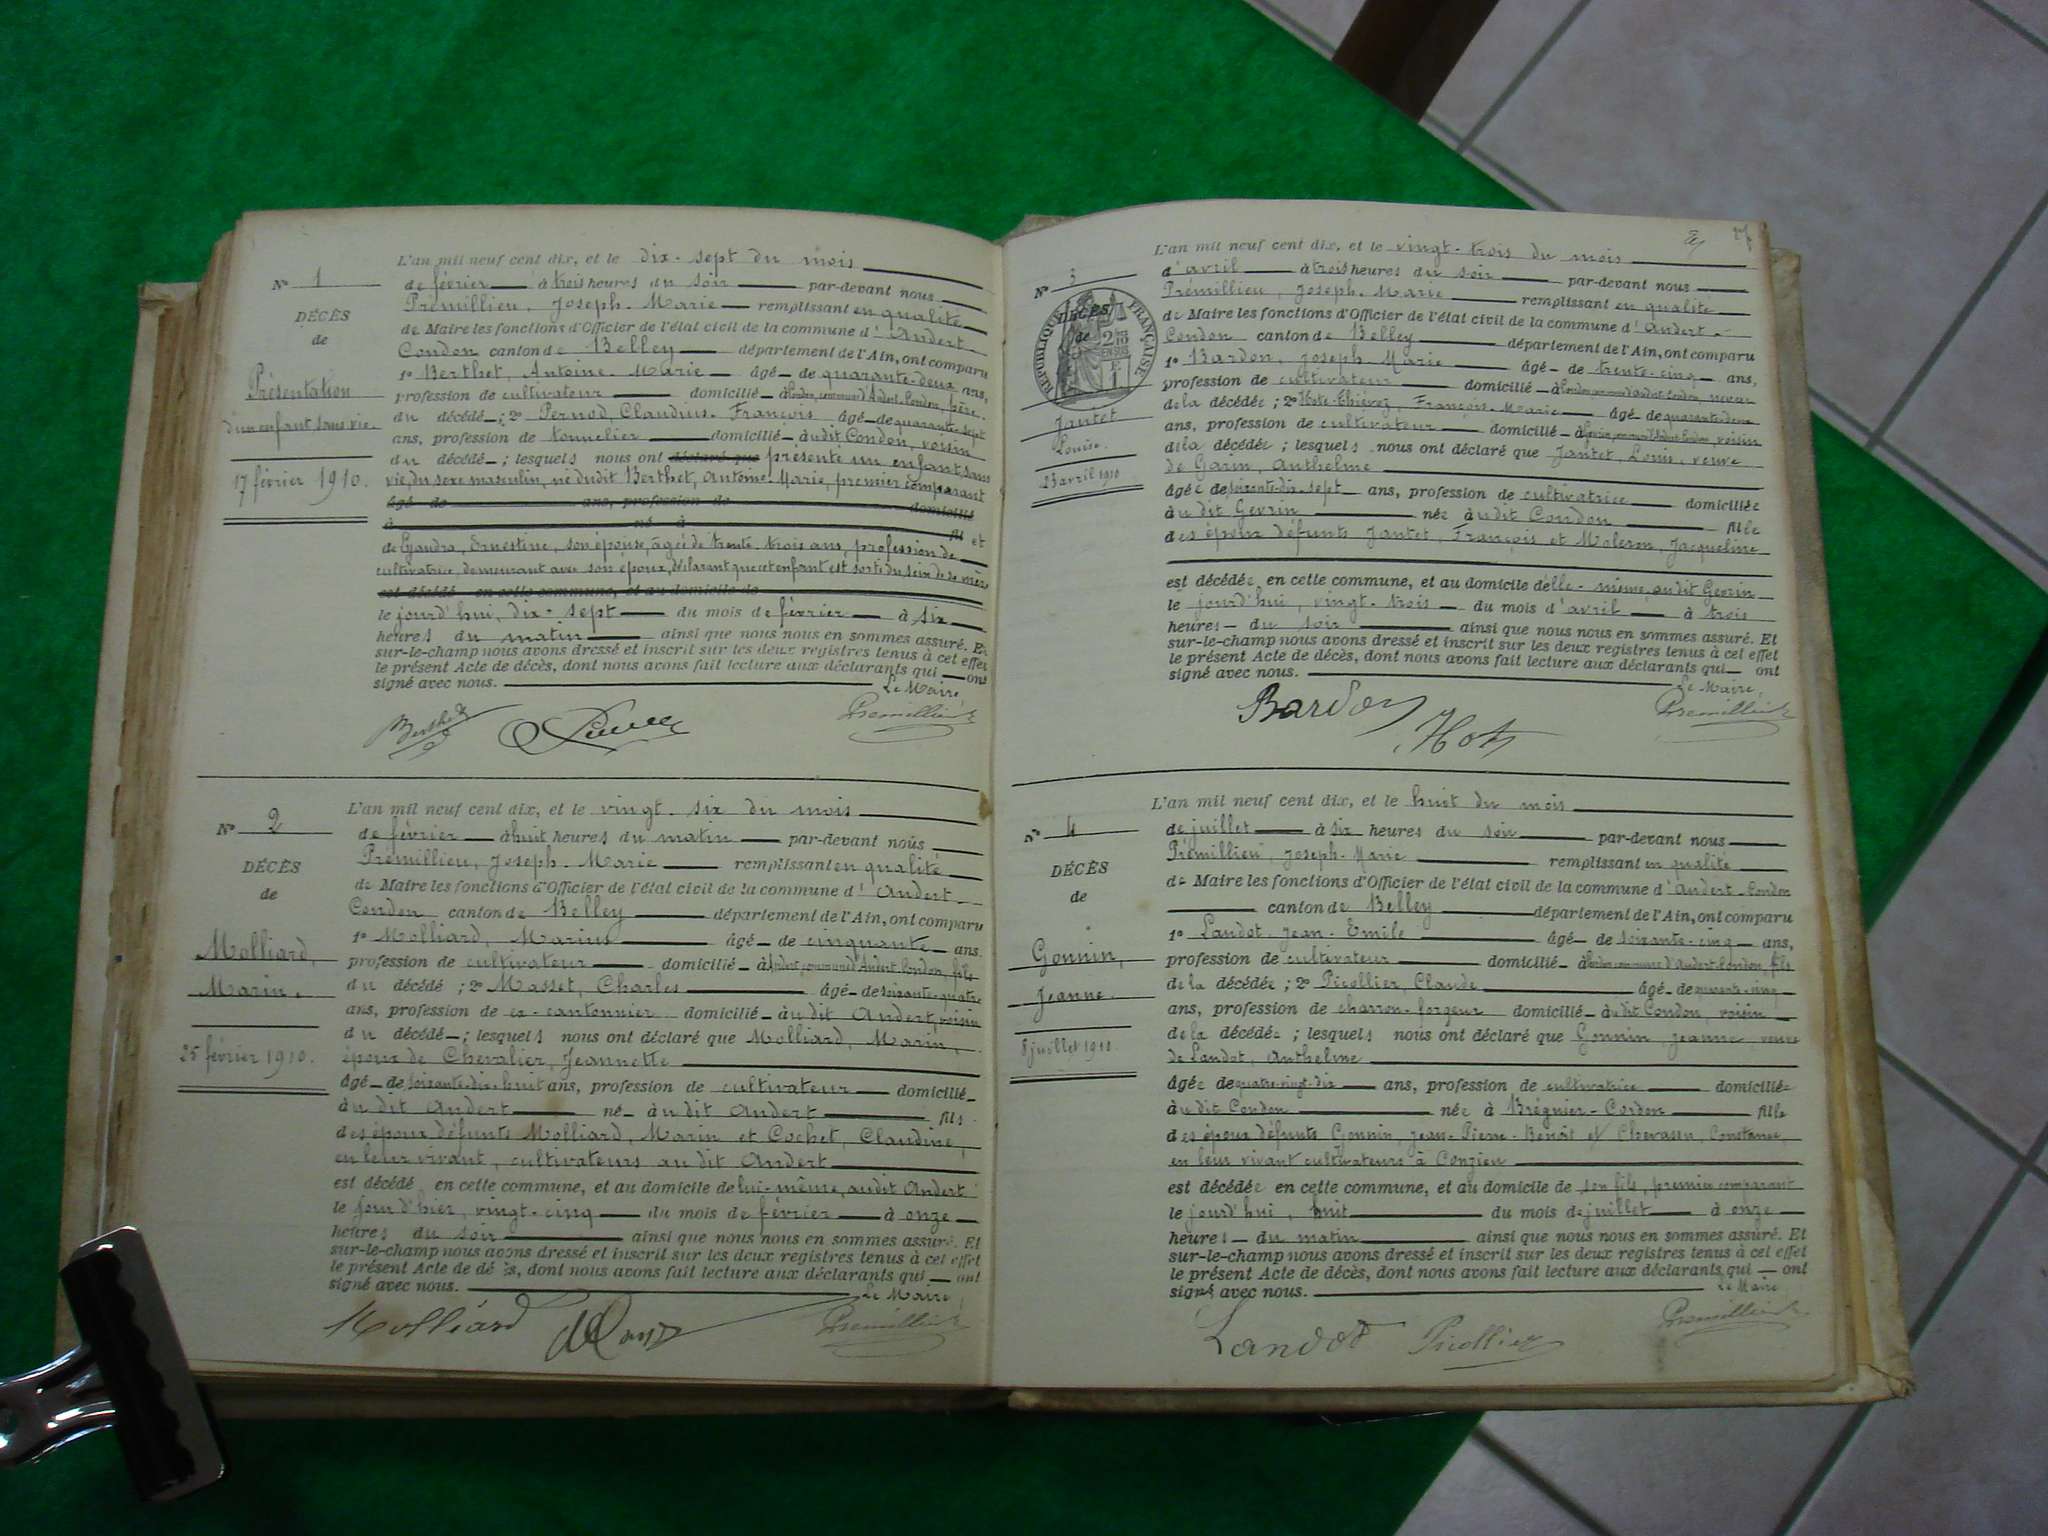 L'an mil neuf cent dix, et le dix-sept du mois
N° 1
de février à trois heures du soir par-devant nous
Prémillieu, Joseph-Marie remplissant en qualité
DÉCÈS
de Maire les fonctions d'Officier de l'état civil de la commune d'Andert-
de
Condon canton de Belley département de l'Ain, ont comparu
1° Berthet, Antoine-Marie âgé de quarante-deux ans,
Présentation
profession de cultivateur domicilié à Condon, commune d'Andert-Condon, père
d'un enfant sans vie.
du décédé; 2° Pernod, Claudius-François âgé de quarante-sept
ans, profession de tonnelier domicilié audit Condon, voisin
du décédé; lesquels nous ont déclaré que présenté un enfant sans
17 février 1910.
vie, du sexe masculin, né dudit Berthet, Antoine-Marie, premier comparant
âgé de ans, profession de domicilié
à né à fils et
de Gyandra, Ernestine, son épouse, âgée de trente-trois ans, profession de
cultivatrice, demeurant avec son époux, déclarant que cet enfant est sorti du sein de sa mère
est décédé en cette commune, et au domicile de
le jourd'hui, dix-sept du mois de février à six
heures du matin ainsi que nous nous en sommes assuré. Et
sur-le-champ nous avons dressé et inscrit sur les deux registres tenus à cet effet
le présent Acte de décès, dont nous avons fait lecture aux déclarants qui ont
signé avec nous.
Le Maire,
Berthet
Prémillieu
L'an mil neuf cent dix, et le vingt-six du mois
N° 2
de février à huit heures du matin par-devant nous
Prémillieu, Joseph-Marie remplissant en qualité
DÉCÈS
de Maire les fonctions d'Officier de l'état civil de la commune d'Andert-
de
Condon canton de Belley département de l'Ain, ont comparu
1° Molliard, Marius âgé de cinquante ans,
Molliard,
profession de cultivateur domicilié à Andert, commune d'Andert-Condon, fils
Marin.
du décédé; 2° Masset, Charles âgé de soixante-quatre
ans, profession de ex-cantonnier domicilié audit Andert, voisin
du décédé; lesquels nous ont déclaré que Molliard, Marin,
25 février 1910.
époux de Chevalier, Jeannette
âgé de soixante-dix-huit ans, profession de cultivateur domicilié
audit Andert né audit Andert fils
des époux défunts Molliard, Marin et Cochet, Claudine,
en leur vivant, cultivateurs audit Andert
est décédé en cette commune, et au domicile de lui-même, audit Andert
le jour d'hier, vingt-cinq du mois de février à onze
heures du soir ainsi que nous nous en sommes assuré. Et
sur-le-champ nous avons dressé et inscrit sur les deux registres tenus à cet effet
le présent Acte de décès, dont nous avons fait lecture aux déclarants qui ont
signé avec nous.
Le Maire,
Molliard
Prémillieu
L'an mil neuf cent dix, et le vingt-trois du mois
N° 3
d'avril à trois heures du soir par-devant nous
Prémillieu, Joseph-Marie remplissant en qualité
DÉCÈS
RÉPUBLIQUE FRANÇAISE
de Maire les fonctions d'Officier de l'état civil de la commune d'Andert-
de
Condon canton de Belley département de l'Ain, ont comparu
1° Bardon, Joseph-Marie âgé de trente-cinq ans,
profession de cultivateur domicilié à Condon, commune d'Andert-Condon, neveu
de la décédée; 2° Hote-Thievez, François-Marie âgé de quarante-deux
Jantet
ans, profession de cultivateur domicilié à Gevrin, commune d'Andert-Condon, voisin
Louise.
de la décédée; lesquels nous ont déclaré que Jantet, Louise, veuve
23 avril 1910
de Garin, Anthelme
âgée de soixante-dix-sept ans, profession de cultivatrice domiciliée
audit Gevrin née audit Condon fille
des époux défunts Jantet, François et Moleron, Jacqueline
est décédée en cette commune, et au domicile d'elle-même, audit Gevrin
le jourd'hui, vingt-trois du mois d'avril à trois
heures du soir ainsi que nous nous en sommes assuré. Et
sur-le-champ nous avons dressé et inscrit sur les deux registres tenus à cet effet
le présent Acte de décès, dont nous avons fait lecture aux déclarants qui ont
signé avec nous.
Le Maire,
Bardon
Hote
Prémillieu
L'an mil neuf cent dix, et le huit du mois
N° 4
de juillet à six heures du soir par-devant nous
Prémillieu, Joseph-Marie remplissant en qualité
DÉCÈS
de Maire les fonctions d'Officier de l'état civil de la commune d'Andert-Condon
de
canton de Belley département de l'Ain, ont comparu
1° Landot, Jean-Emile âgé de soixante-cinq ans,
Gonnin,
profession de cultivateur domicilié à Condon, commune d'Andert-Condon, fils
Jeanne.
de la décédée; 2° Picollier, Claude âgé de quarante-cinq
ans, profession de charron-forgeur domicilié audit Condon, voisin
de la décédée; lesquels nous ont déclaré que Gonnin, Jeanne, veuve
8 juillet 1910.
de Landot, Anthelme
âgée de quatre-vingt-dix ans, profession de cultivatrice domiciliée
audit Condon née à Brégnier-Cordon fille
des époux défunts Gonnin, Jean-Pierre-Benoît et Chevassu, Constance,
en leur vivant cultivateurs à Conzieu
est décédée en cette commune, et au domicile de son fils, premier comparant
le jourd'hui, huit du mois de juillet à onze
heures du matin ainsi que nous nous en sommes assuré. Et
sur-le-champ nous avons dressé et inscrit sur les deux registres tenus à cet effet
le présent Acte de décès, dont nous avons fait lecture aux déclarants qui ont
signé avec nous.
Le Maire
Landot
Picollier
Prémillieu